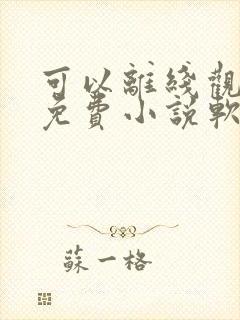 可以離綫觀
免費小說軟
蘇一格